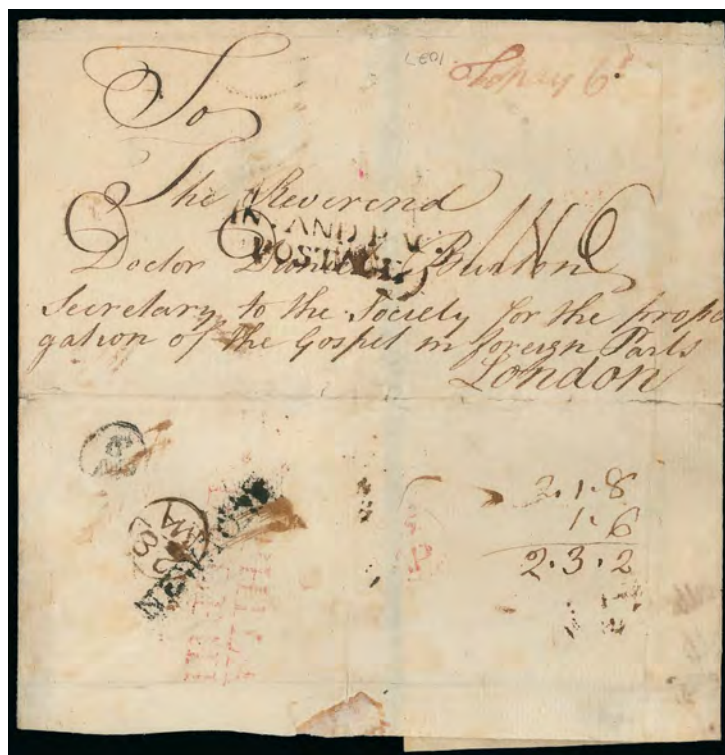 To pay 6
To
The Reverend
IN
AND PAC
POSTAGE
N 6
Doctor Daniel Burton
Secretary to the Society for the propa
gation of the Gospel in foreign Parts
London
2.1.8
1.6
2.3.2
NEW YORK
MA